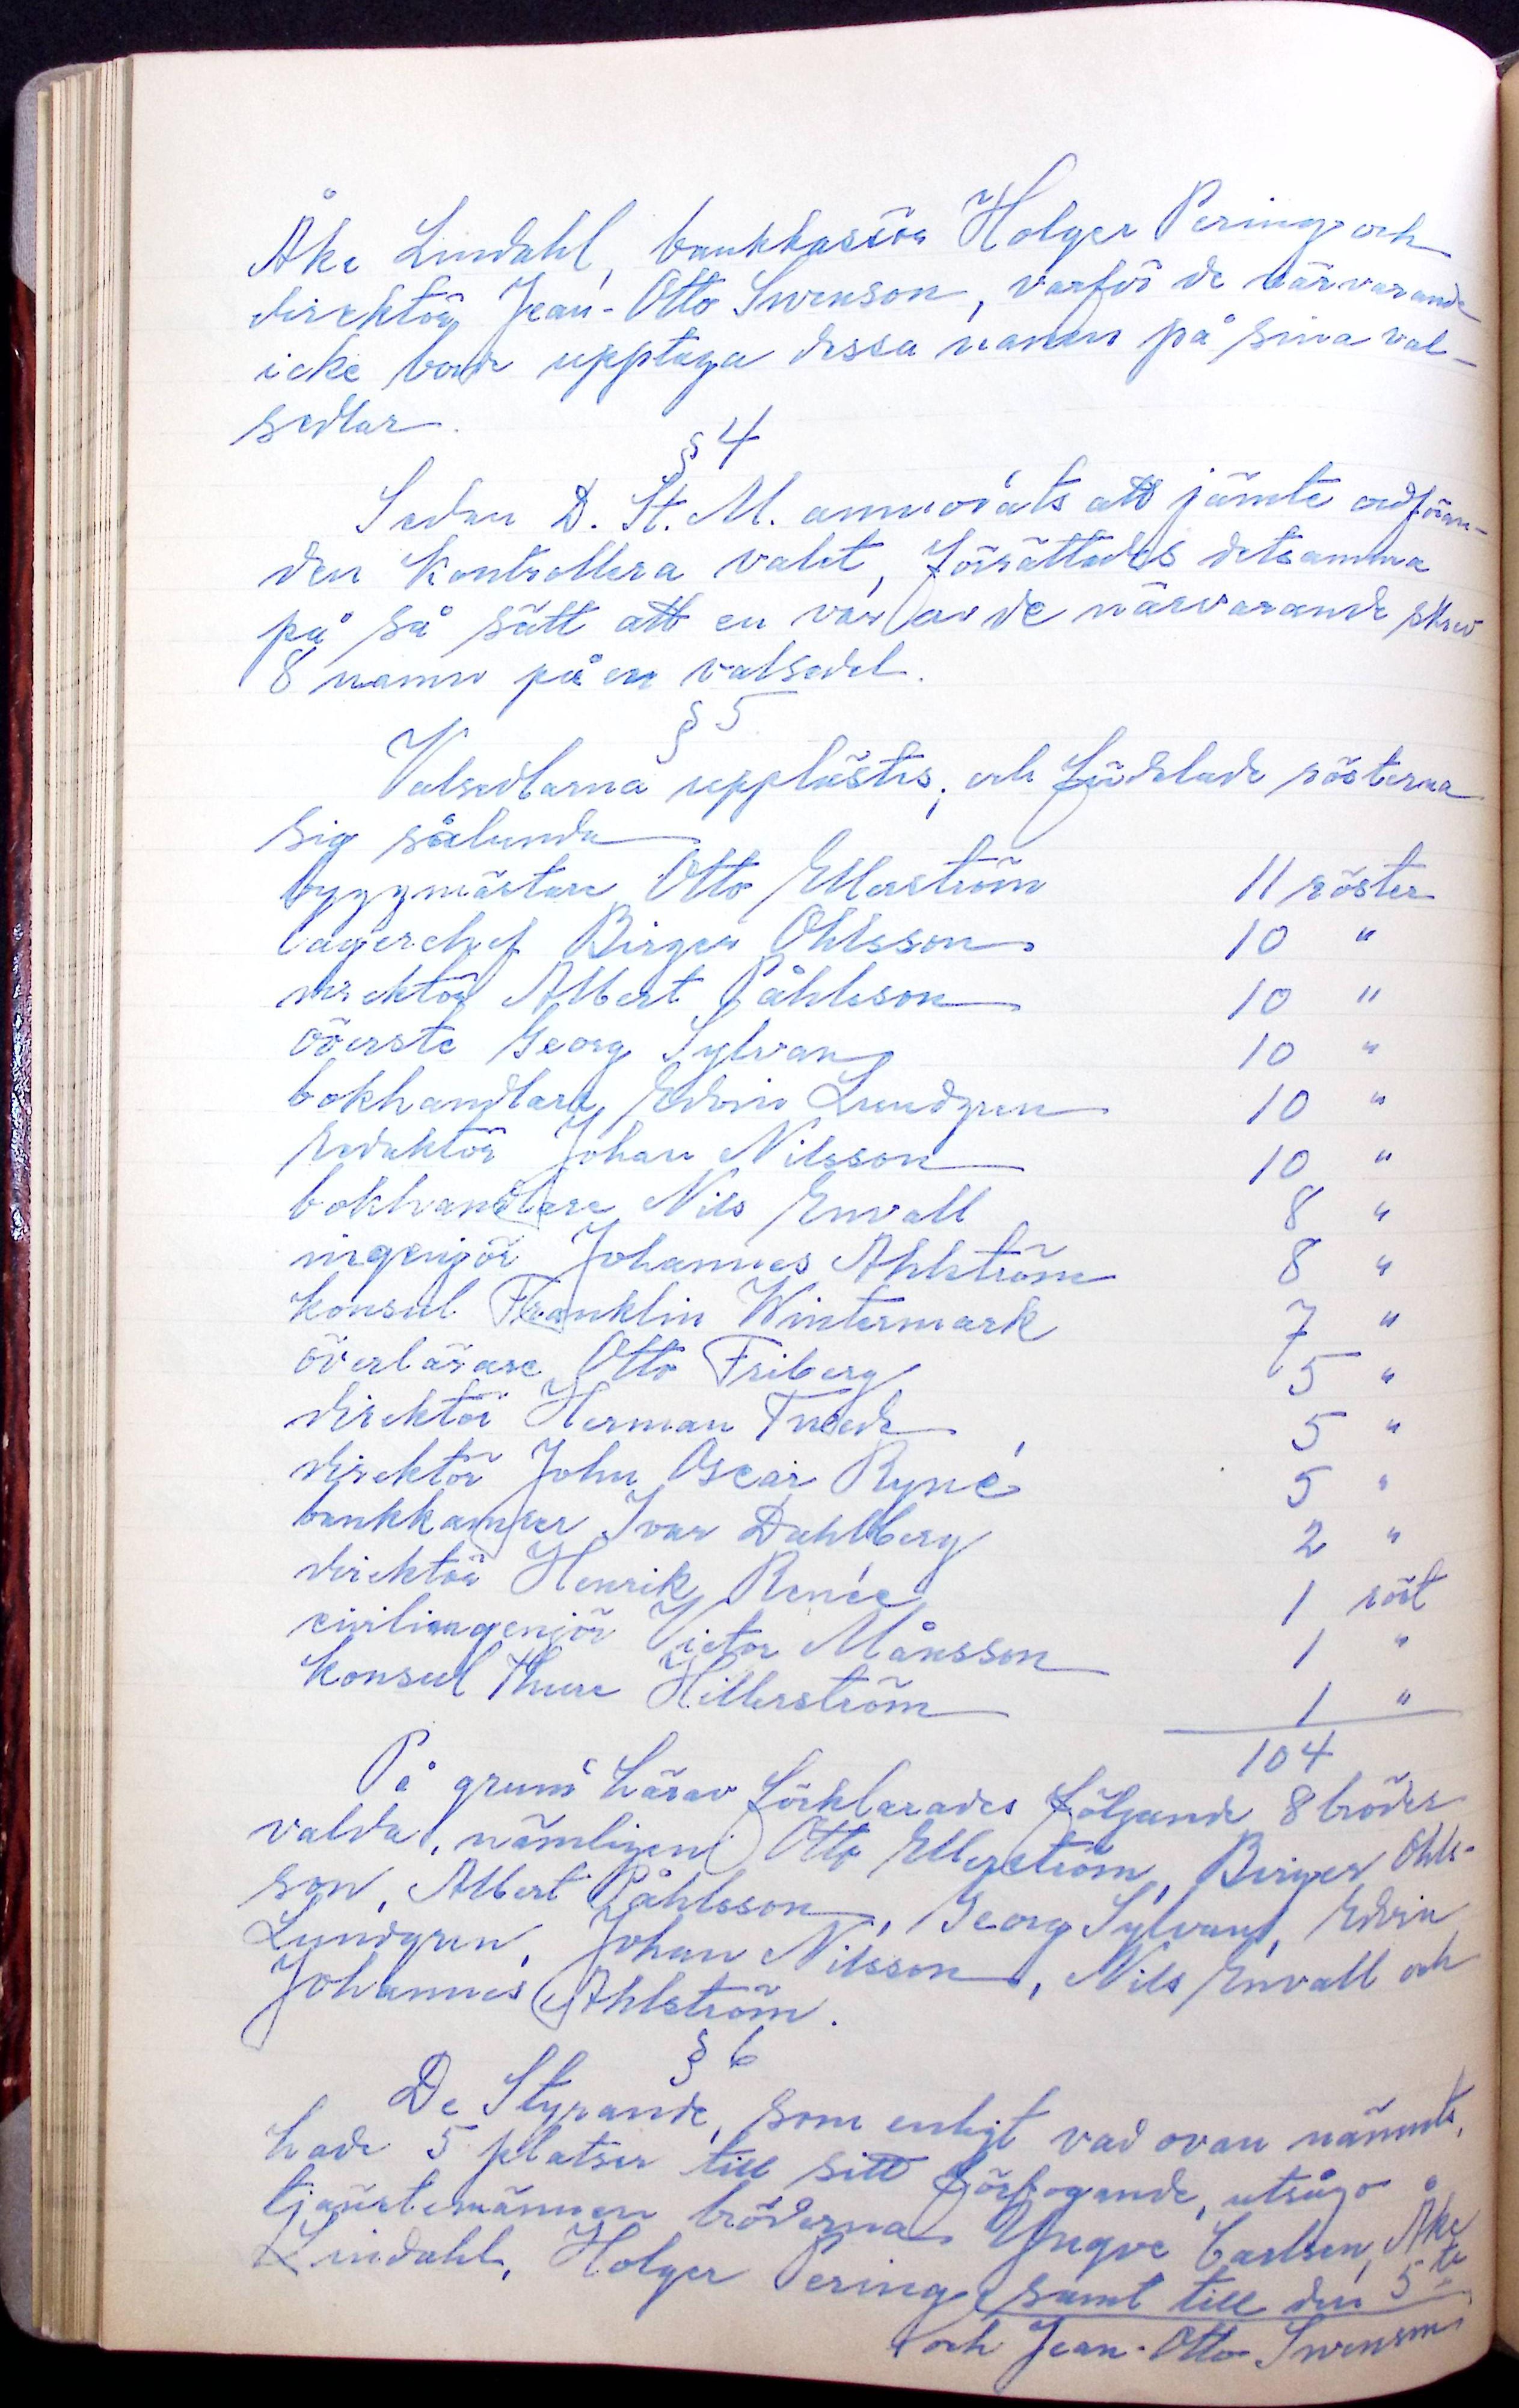 Åke Lindahl, bankkassör Holger Pering och
direktör Jean-Otto Swenson, varför de närvarande
icke borde upptaga dessa namn på sina val-
sedlar.
§ 4
Sedan D. St. M. anmodats att jämte ordföran-
den kontrollera valet, förrättades detsamma
på så sätt att en var av de närvarande skrev
8 namn på en valsedel.
§ 5
Valsedlarna upplästes, och fördelade rösterna
sig sålunda
byggmästare Otto Ellerström 11 röster
lagerchef Birger Ohlsson 10 "
direktör Albert Påhlsson 10 "
överste Georg Sylvan 10 "
bokhandlare Edvin Lundgren 10 "
redaktör Johan Nilsson 10 "
bokhandlare Nils Envall 8 "
ingenjör Johannes Ahlström 8 "
konsul Franklin Wintermark 7 "
överlärare Otto Friberg 5 "
direktör Herman 5 "
direktör John Oscar Ryné 5 "
bankkamrer Ivar Dahlberg 2 "
direktör Henrik Renée 1 röst
civilingenjör Victor Månsson 1 "
konsul Thure Hillerström 1 "
104
På grund härav förklarades följande 8 bröder
valda, nämligen Otto Ellerström, Birger Ohls-
son, Albert Påhlsson, Georg Sylvan, Edvin
Lundgren, Johan Nilsson, Nils Envall och
Johannes Ahlström.
§ 6
De Styrande, som enligt vad ovan nämnts,
hade 5 platser till sitt förfogande, utsågo
tjänstemännen bröderna Yngve Carlsen, Åke
Lindahl, Holger Pering samt till den 5te
och Jean-Otto Swenson